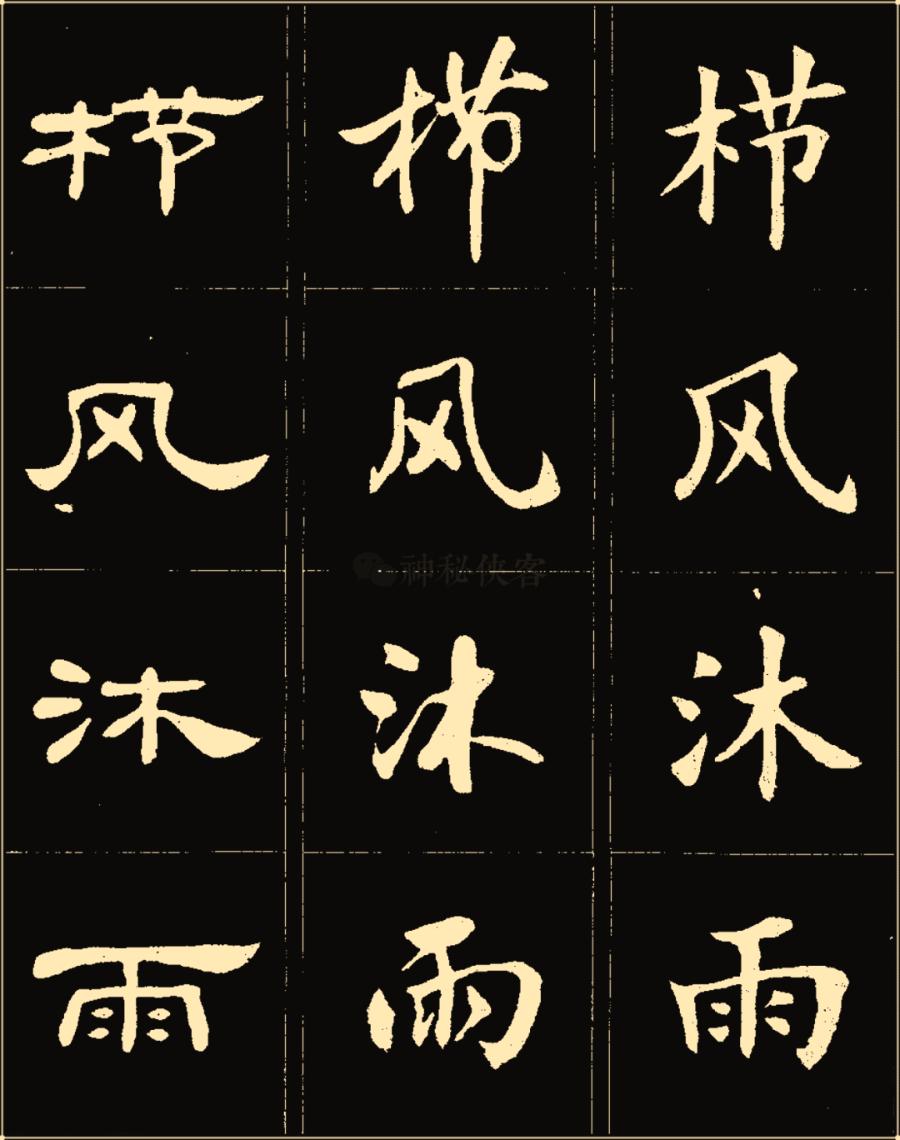 栉风沐雨
栉风沐雨
栉风沐雨
神秘侠客